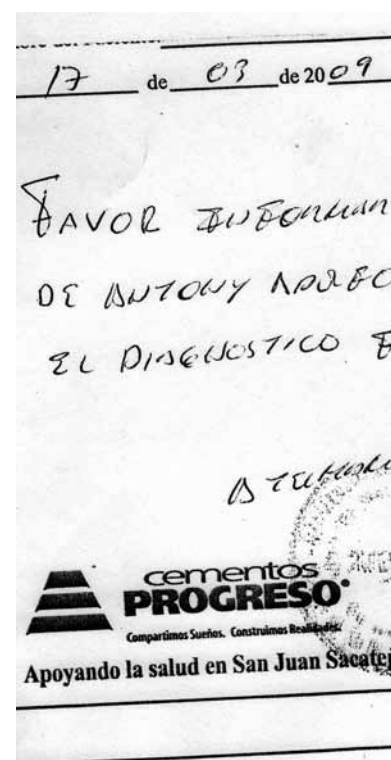 17 de 03 de 2009
FAVOR INFORMAR
DE ANTONY
EL DIAGNOSTICO
cementos
PROGRESO
Compartimos Sueños. Construimos Realidades.
Apoyando la salud en San Juan Sacatej